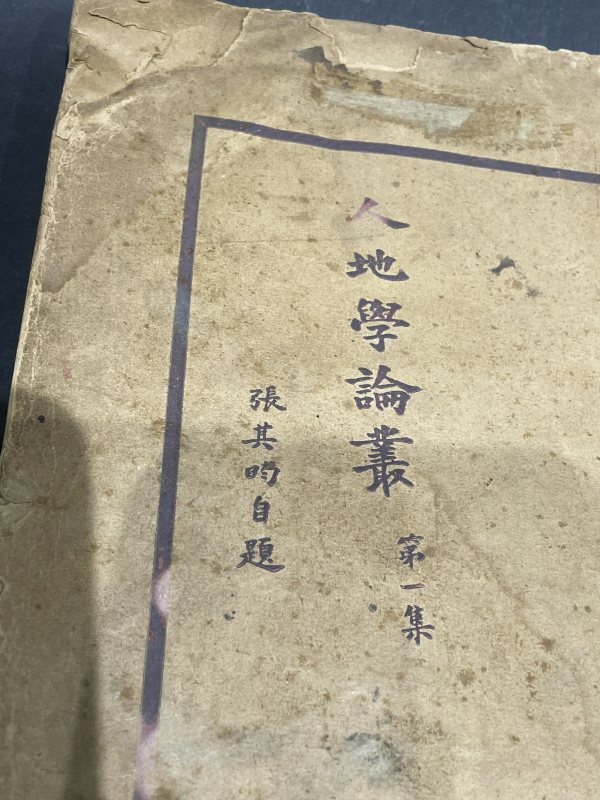 人地學論叢
第一集
張其昀自題